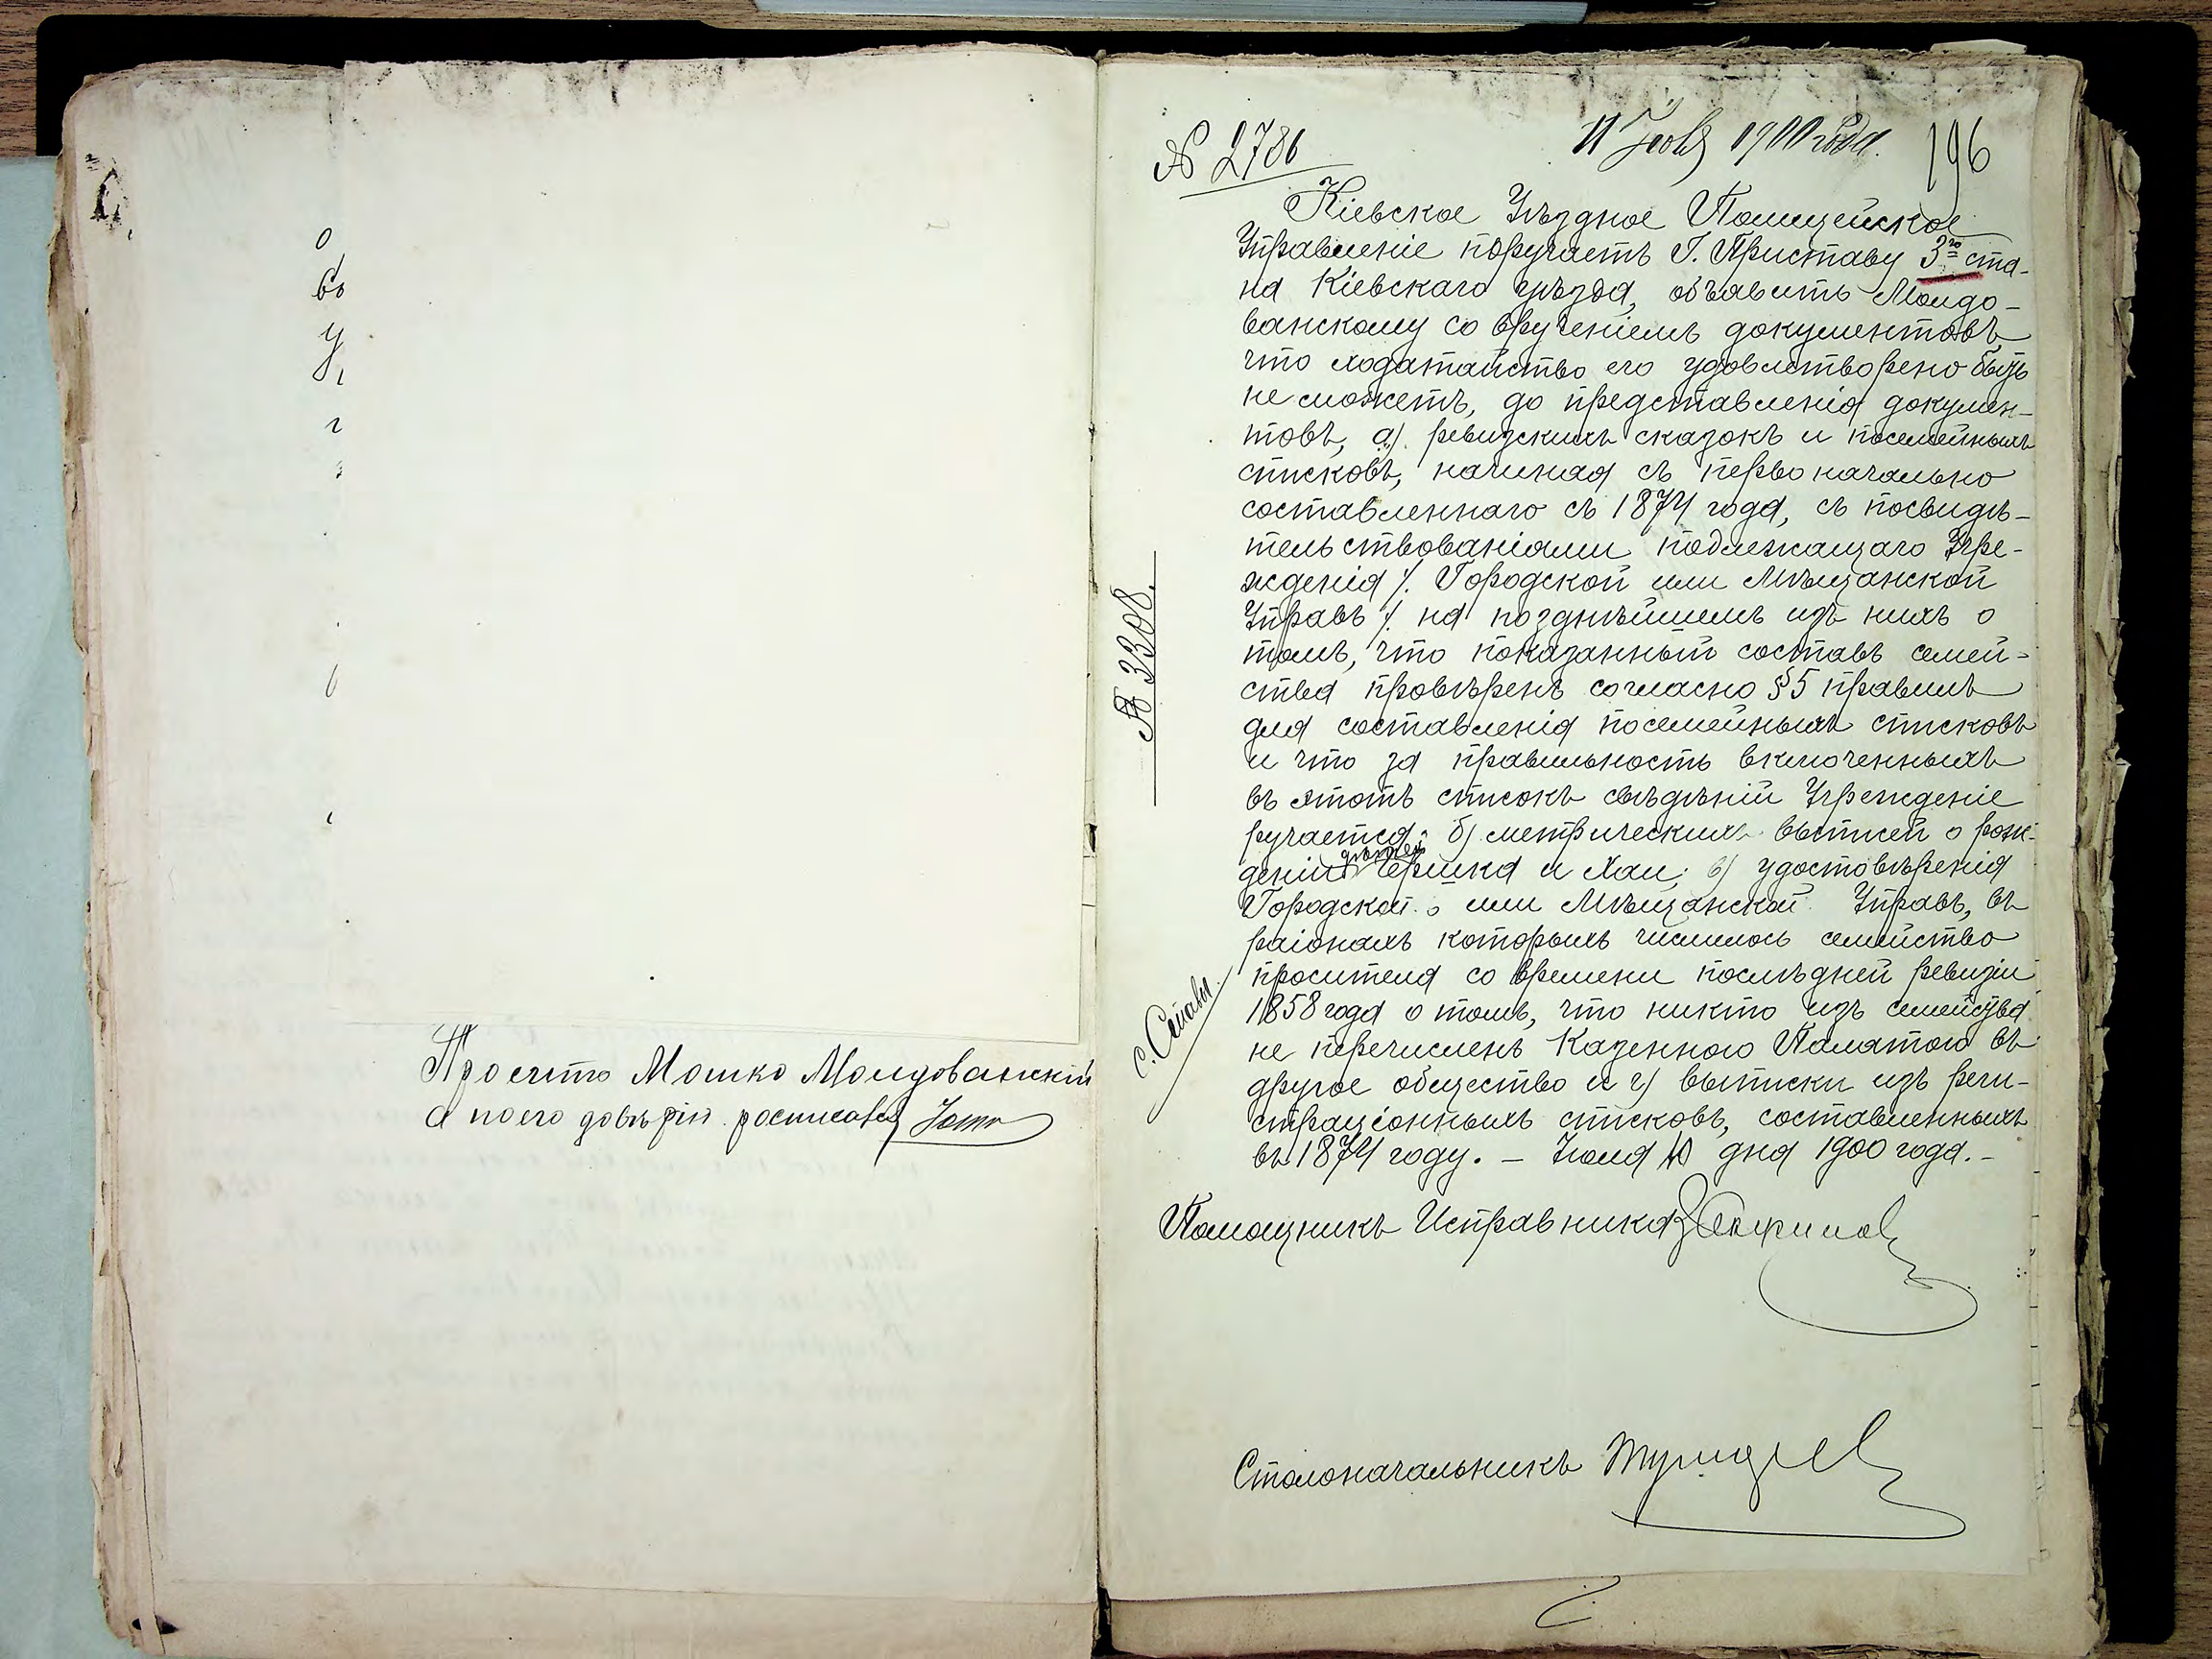 о
во
у
Проситъ Мошко Молдованскій
а по его довѣрію росписався
№ 2786
11 Іюля 1900 года.
196
Кіевское Уѣздное Полицейское
Управленіе поручаетъ Г. Приставу 3го ста-
на Кіевскаго уѣзда, объявить Молдо-
ванскому со врученіемъ документовъ,
что ходатайство его удовлетворено быть
не можетъ, до представленія докумен-
товъ, а). ревизскихъ сказокъ и посемейныхъ
списковъ, начиная съ первоначально
составленнаго съ 1874 года, съ посвидѣ-
тельствованіями подлежащаго Учре-
жденія /. Городской или Мѣщанской
Управъ /. на позднѣйшемъ изъ нихъ о
томъ, что показанный составъ семей-
ства провѣренъ согласно §5 правилъ
для составленія посемейныхъ списковъ
и что за правильность включенныхъ
въ этотъ списокъ свѣдѣній Учрежденіе
ручается; б) метрическихъ выписей о рож-
деніи дѣтей Гершка и Хаи; в) удостовѣренія
Городской или Мѣщанской Управъ, въ
раіонахъ которыхъ числилось семейство
просителя со времени послѣдней ревизіи
1858 года о томъ, что никто изъ семейства
не перечисленъ Казенною Палатою въ
другое общество и г) выписки изъ реги-
страціонныхъ списковъ, составленныхъ
въ 1874 году. — Іюля 10 дня 1900 года. —
№ 3308.
с. Ставы.
Помощникъ Исправника
Столоначальникъ